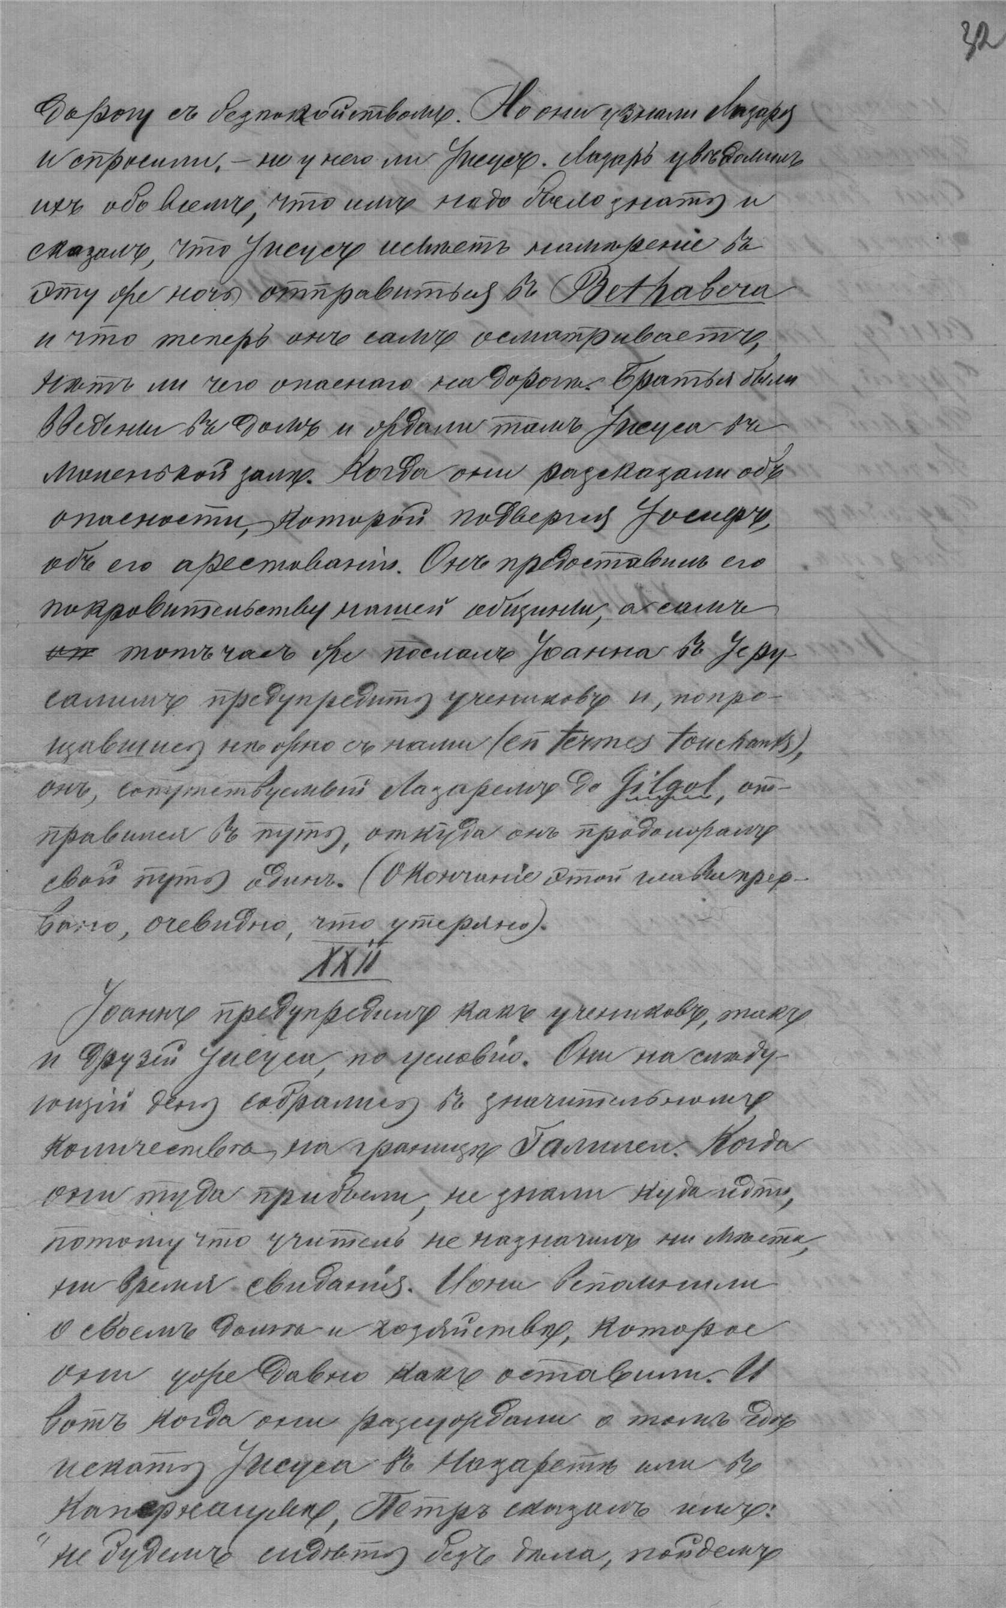 32
дорогу съ безпокойствомъ. Но они узнали Лазаря
и спросили, – не у него ли Іисусъ. Лазарь увѣдомилъ
ихъ обо всемъ, что имъ надо было знать и
сказалъ, что Іисусъ имѣетъ намѣреніе въ
эту же ночь отправиться въ Bethabera
и что теперь онъ самъ осматриваетъ,
нѣтъ ли чего опаснаго на дорогѣ. Братья были
введены въ домъ и ждали тамъ Іисуса въ
маленькой залѣ. Когда они разсказали объ
опасности, которой подвергся Іосифъ,
объ его арестованіи. Онъ предоставилъ его
покровительству нашей общины, а самъ
он тотъ часъ же послалъ Іоанна въ Іеру-
салимъ предупредить учениковъ и, попро-
щавшись нѣжно съ нами (en termes touchants),
онъ, сопутствуемый Лазаремъ до Gilgol, от-
правился въ путь, откуда онъ продолжалъ
свой путь одинъ. (Окончаніе этой главы прер-
вано, очевидно, что утеряно).
XXII
Іоаннъ предупредилъ какъ учениковъ, такъ
и друзей Іисуса, по условію. Они на слѣду-
ющій день собрались въ значительномъ
количествѣ на границѣ Галилеи. Когда
они туда прибыли, не знали куда идти,
потому что учитель не назначилъ ни мѣста,
ни время свиданія. И они вспомнили
о своемъ домѣ и хозяйствѣ, которое
они уже давно какъ оставили. И
вотъ когда они разсуждали о томъ гдѣ
искать Іисуса въ Назаретѣ или въ
Капернаумѣ, Петръ сказалъ имъ:
"не будемъ сидѣть безъ дѣла, пойдемъ